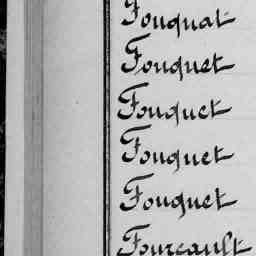 Fouquat
Fouquet
Fouquet
Fouquet
Fouquet
Fourcault